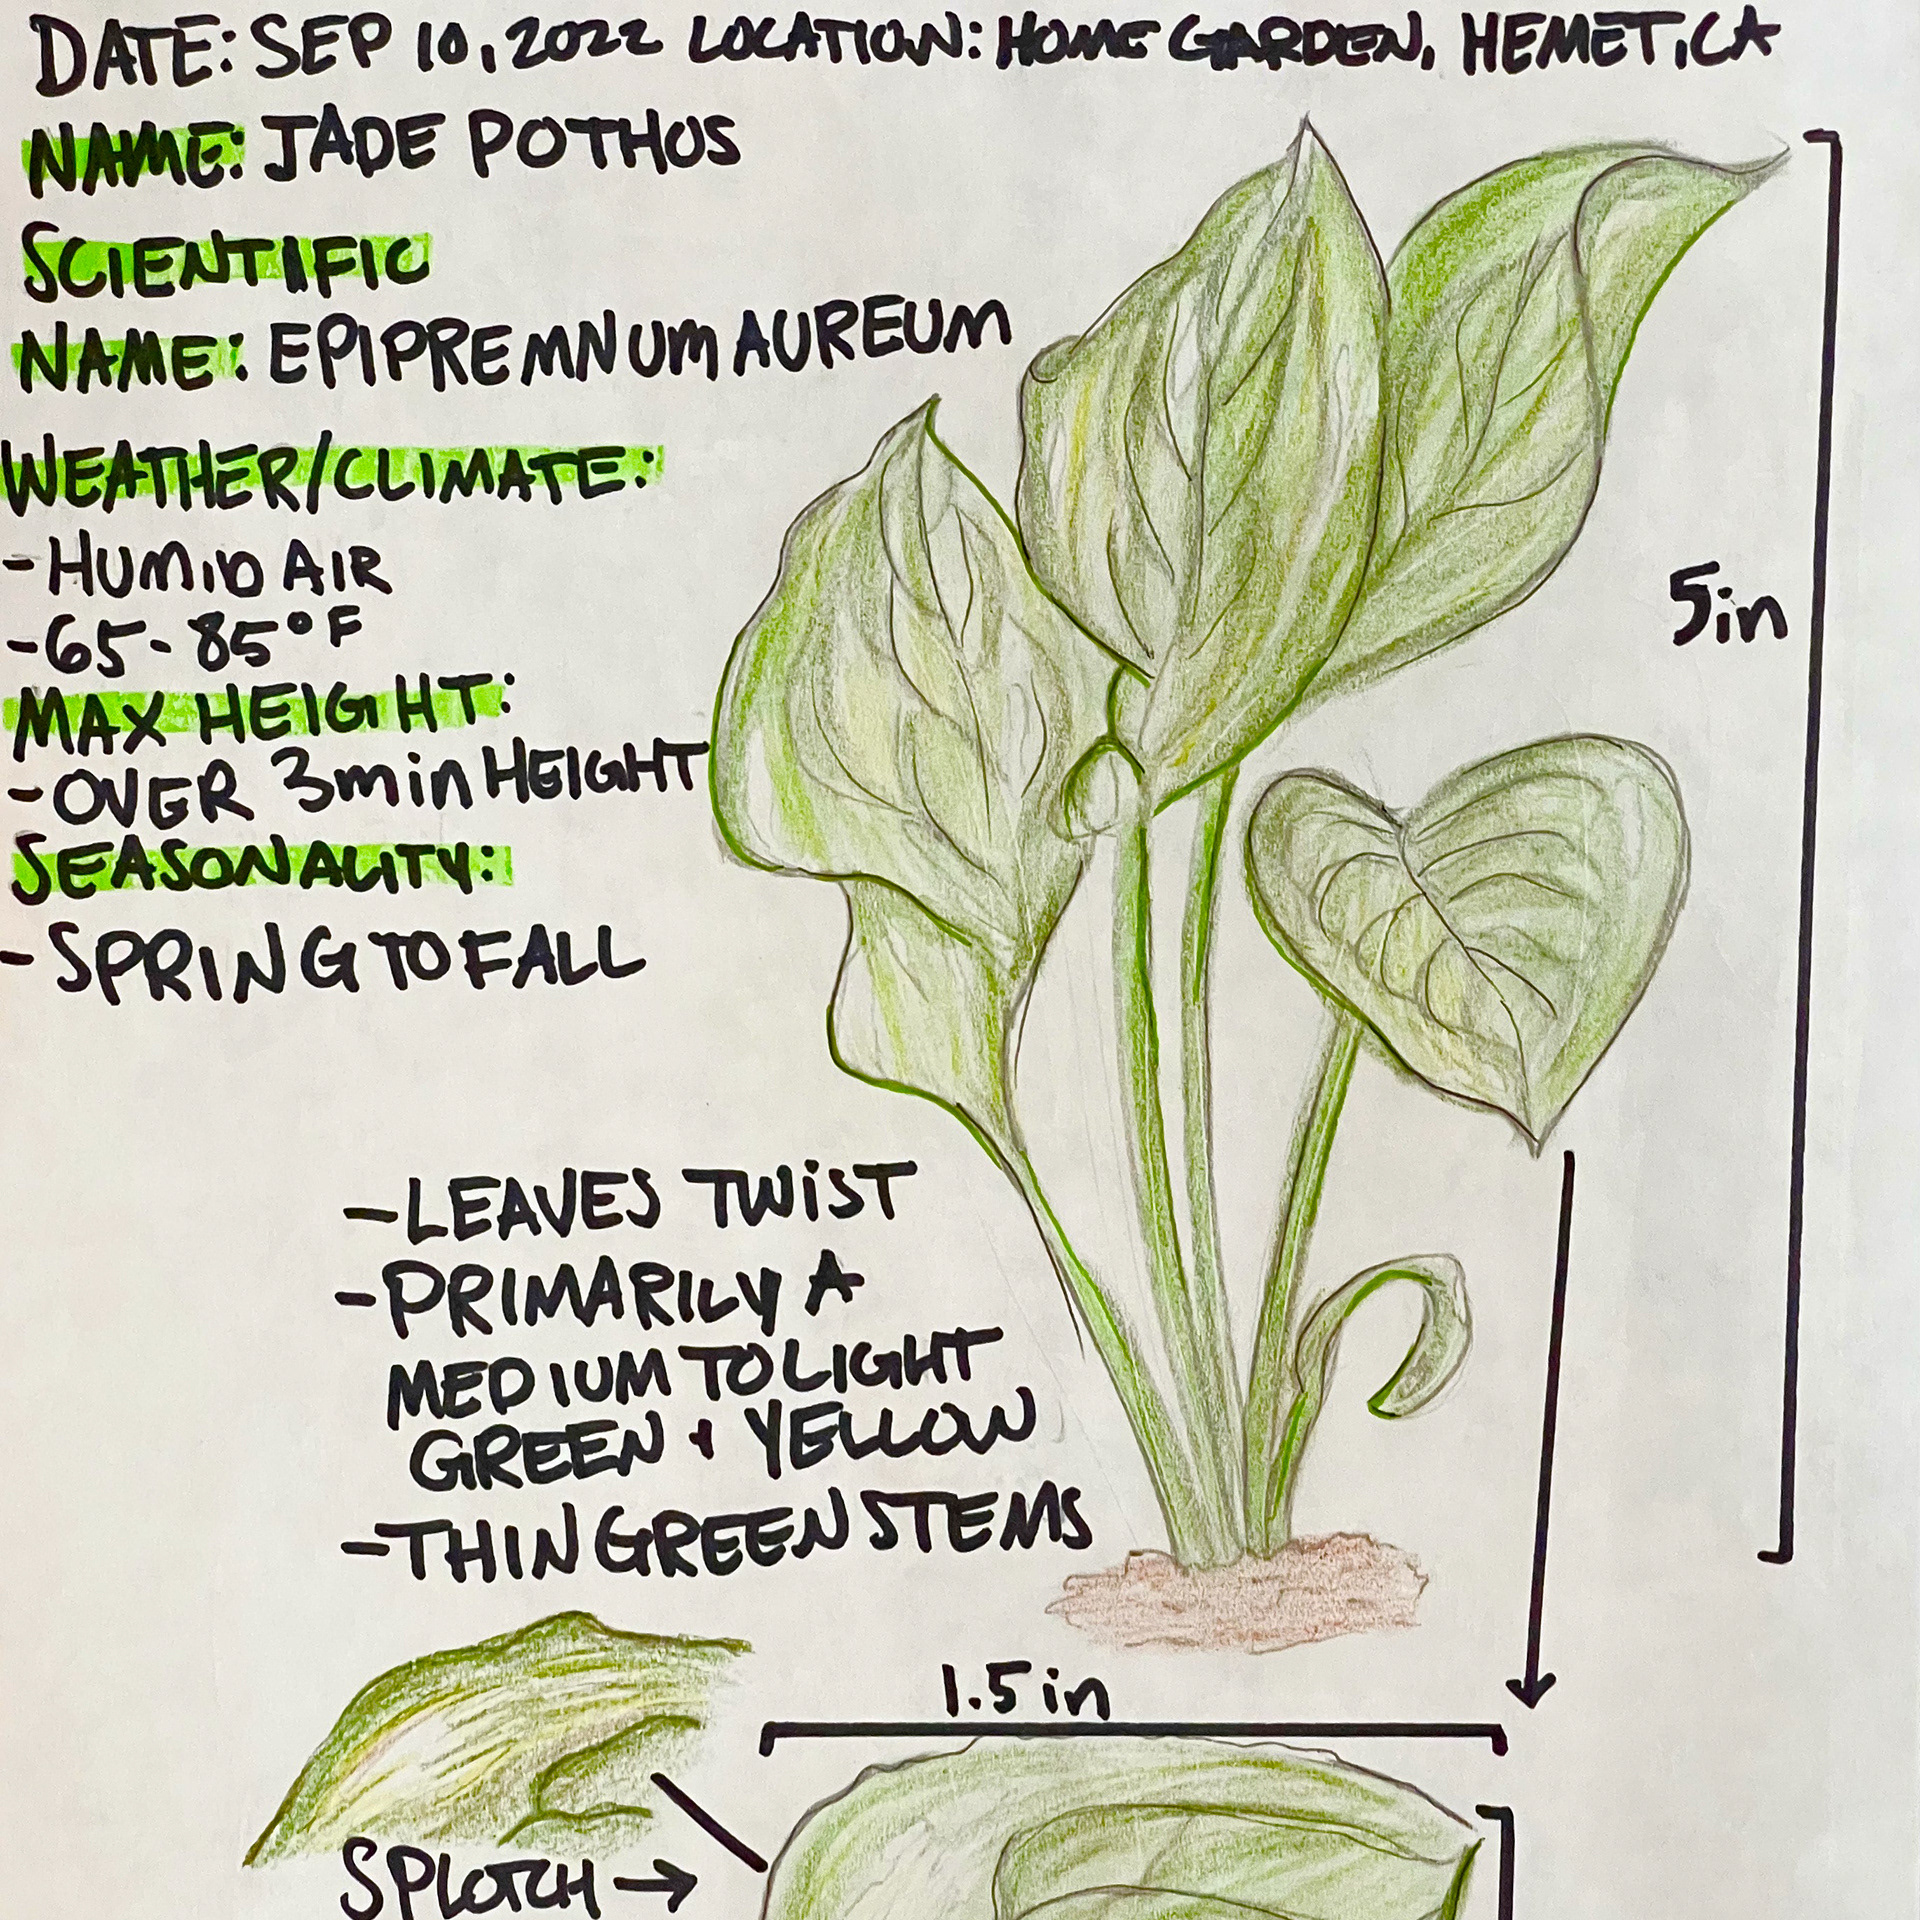 DATE: SEP 10, 2022 LOCATION: HOME GARDEN, HEMET, CA
NAME: JADE POTHOS
SCIENTIFIC
NAME: EPIPREMNUM AUREUM
WEATHER/CLIMATE:
- HUMID AIR
- 65-85°F
MAX HEIGHT:
- OVER 3m in HEIGHT
SEASONALITY:
- SPRING TO FALL
5in
- LEAVES TWIST
- PRIMARILY A
MEDIUM TO LIGHT
GREEN + YELLOW
- THIN GREEN STEMS
1.5in
SPLOTCH →